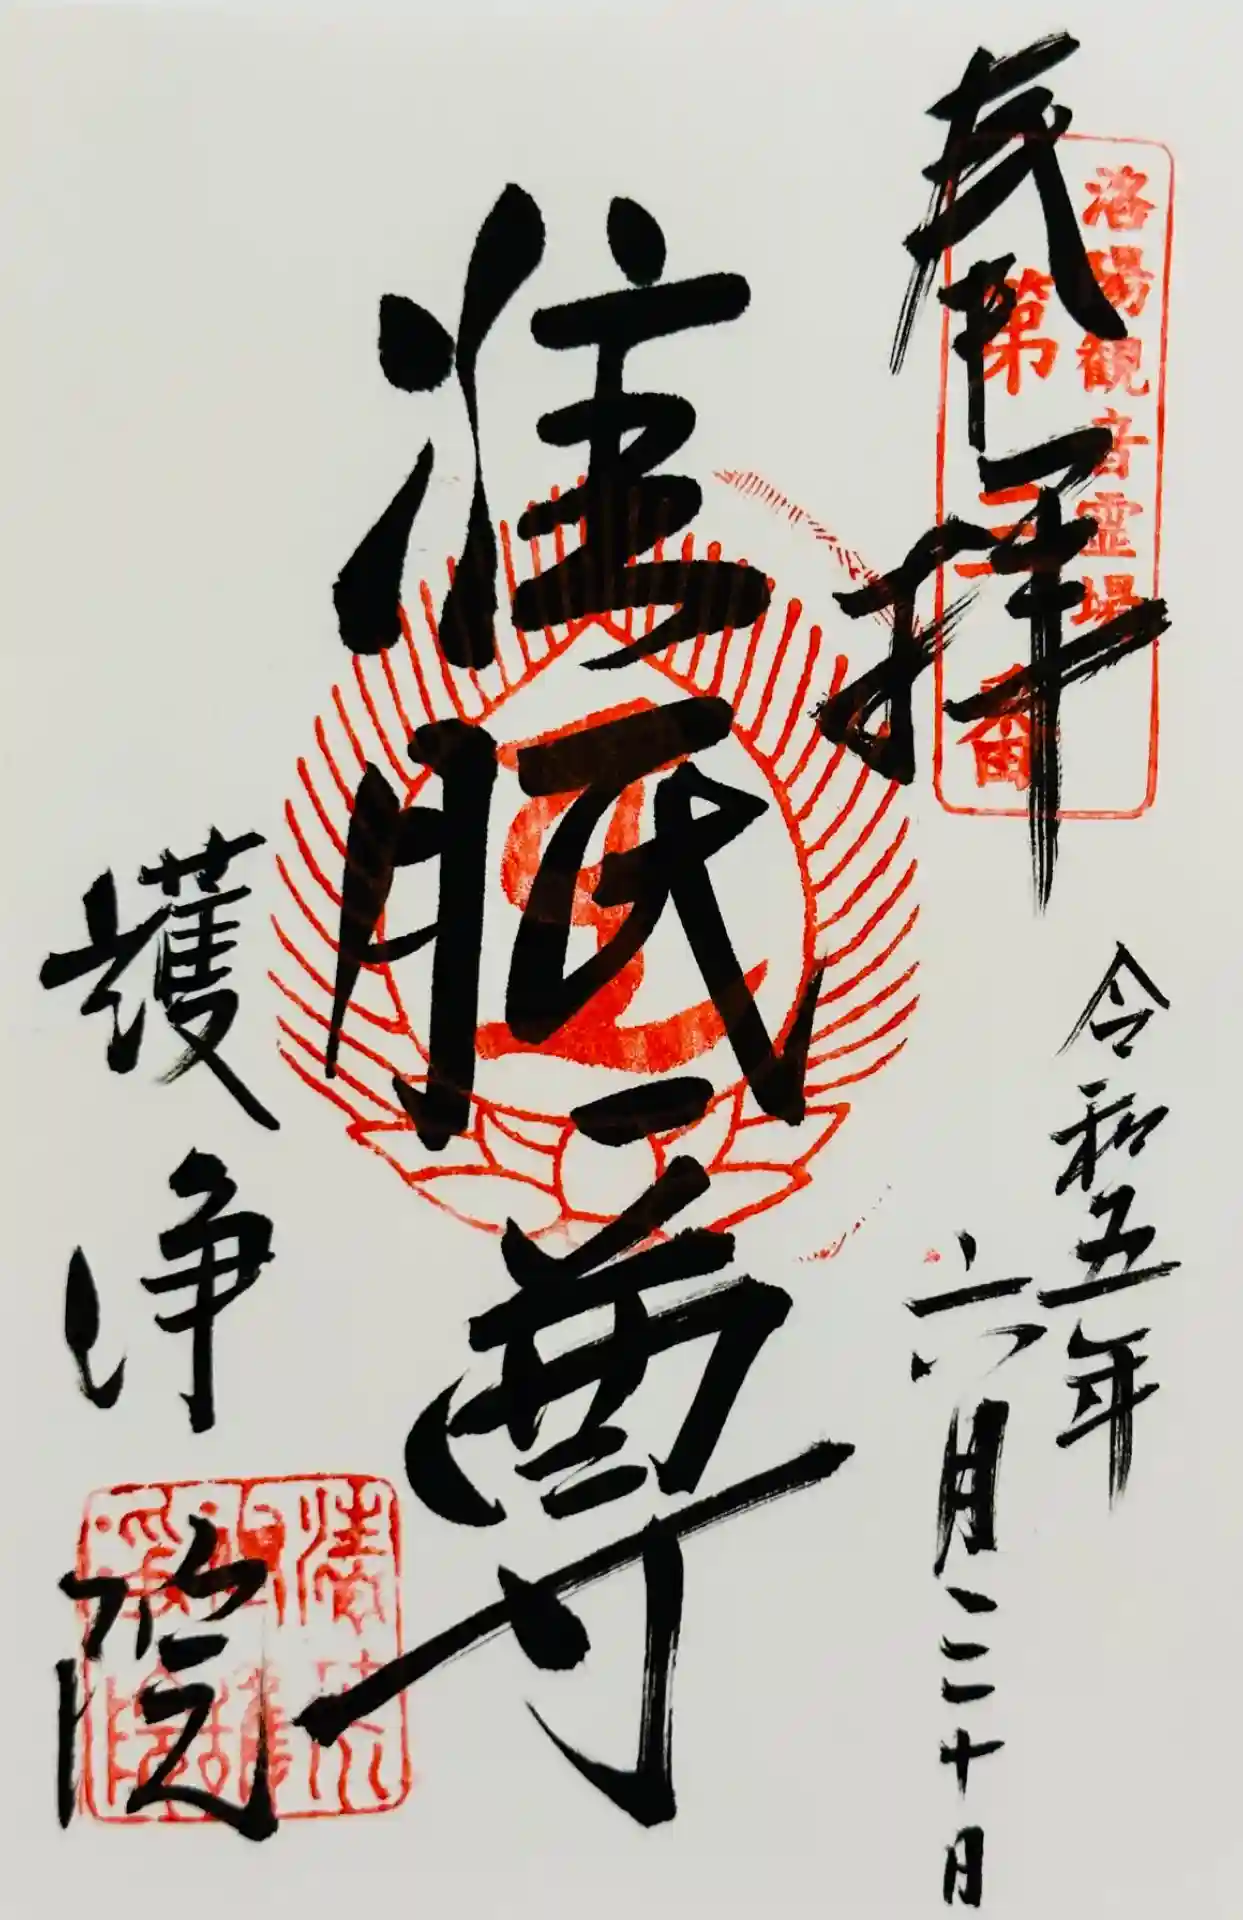 奉拝
洛陽観音霊場
第三番
令和五年
六月二十日
准胝尊
護浄院